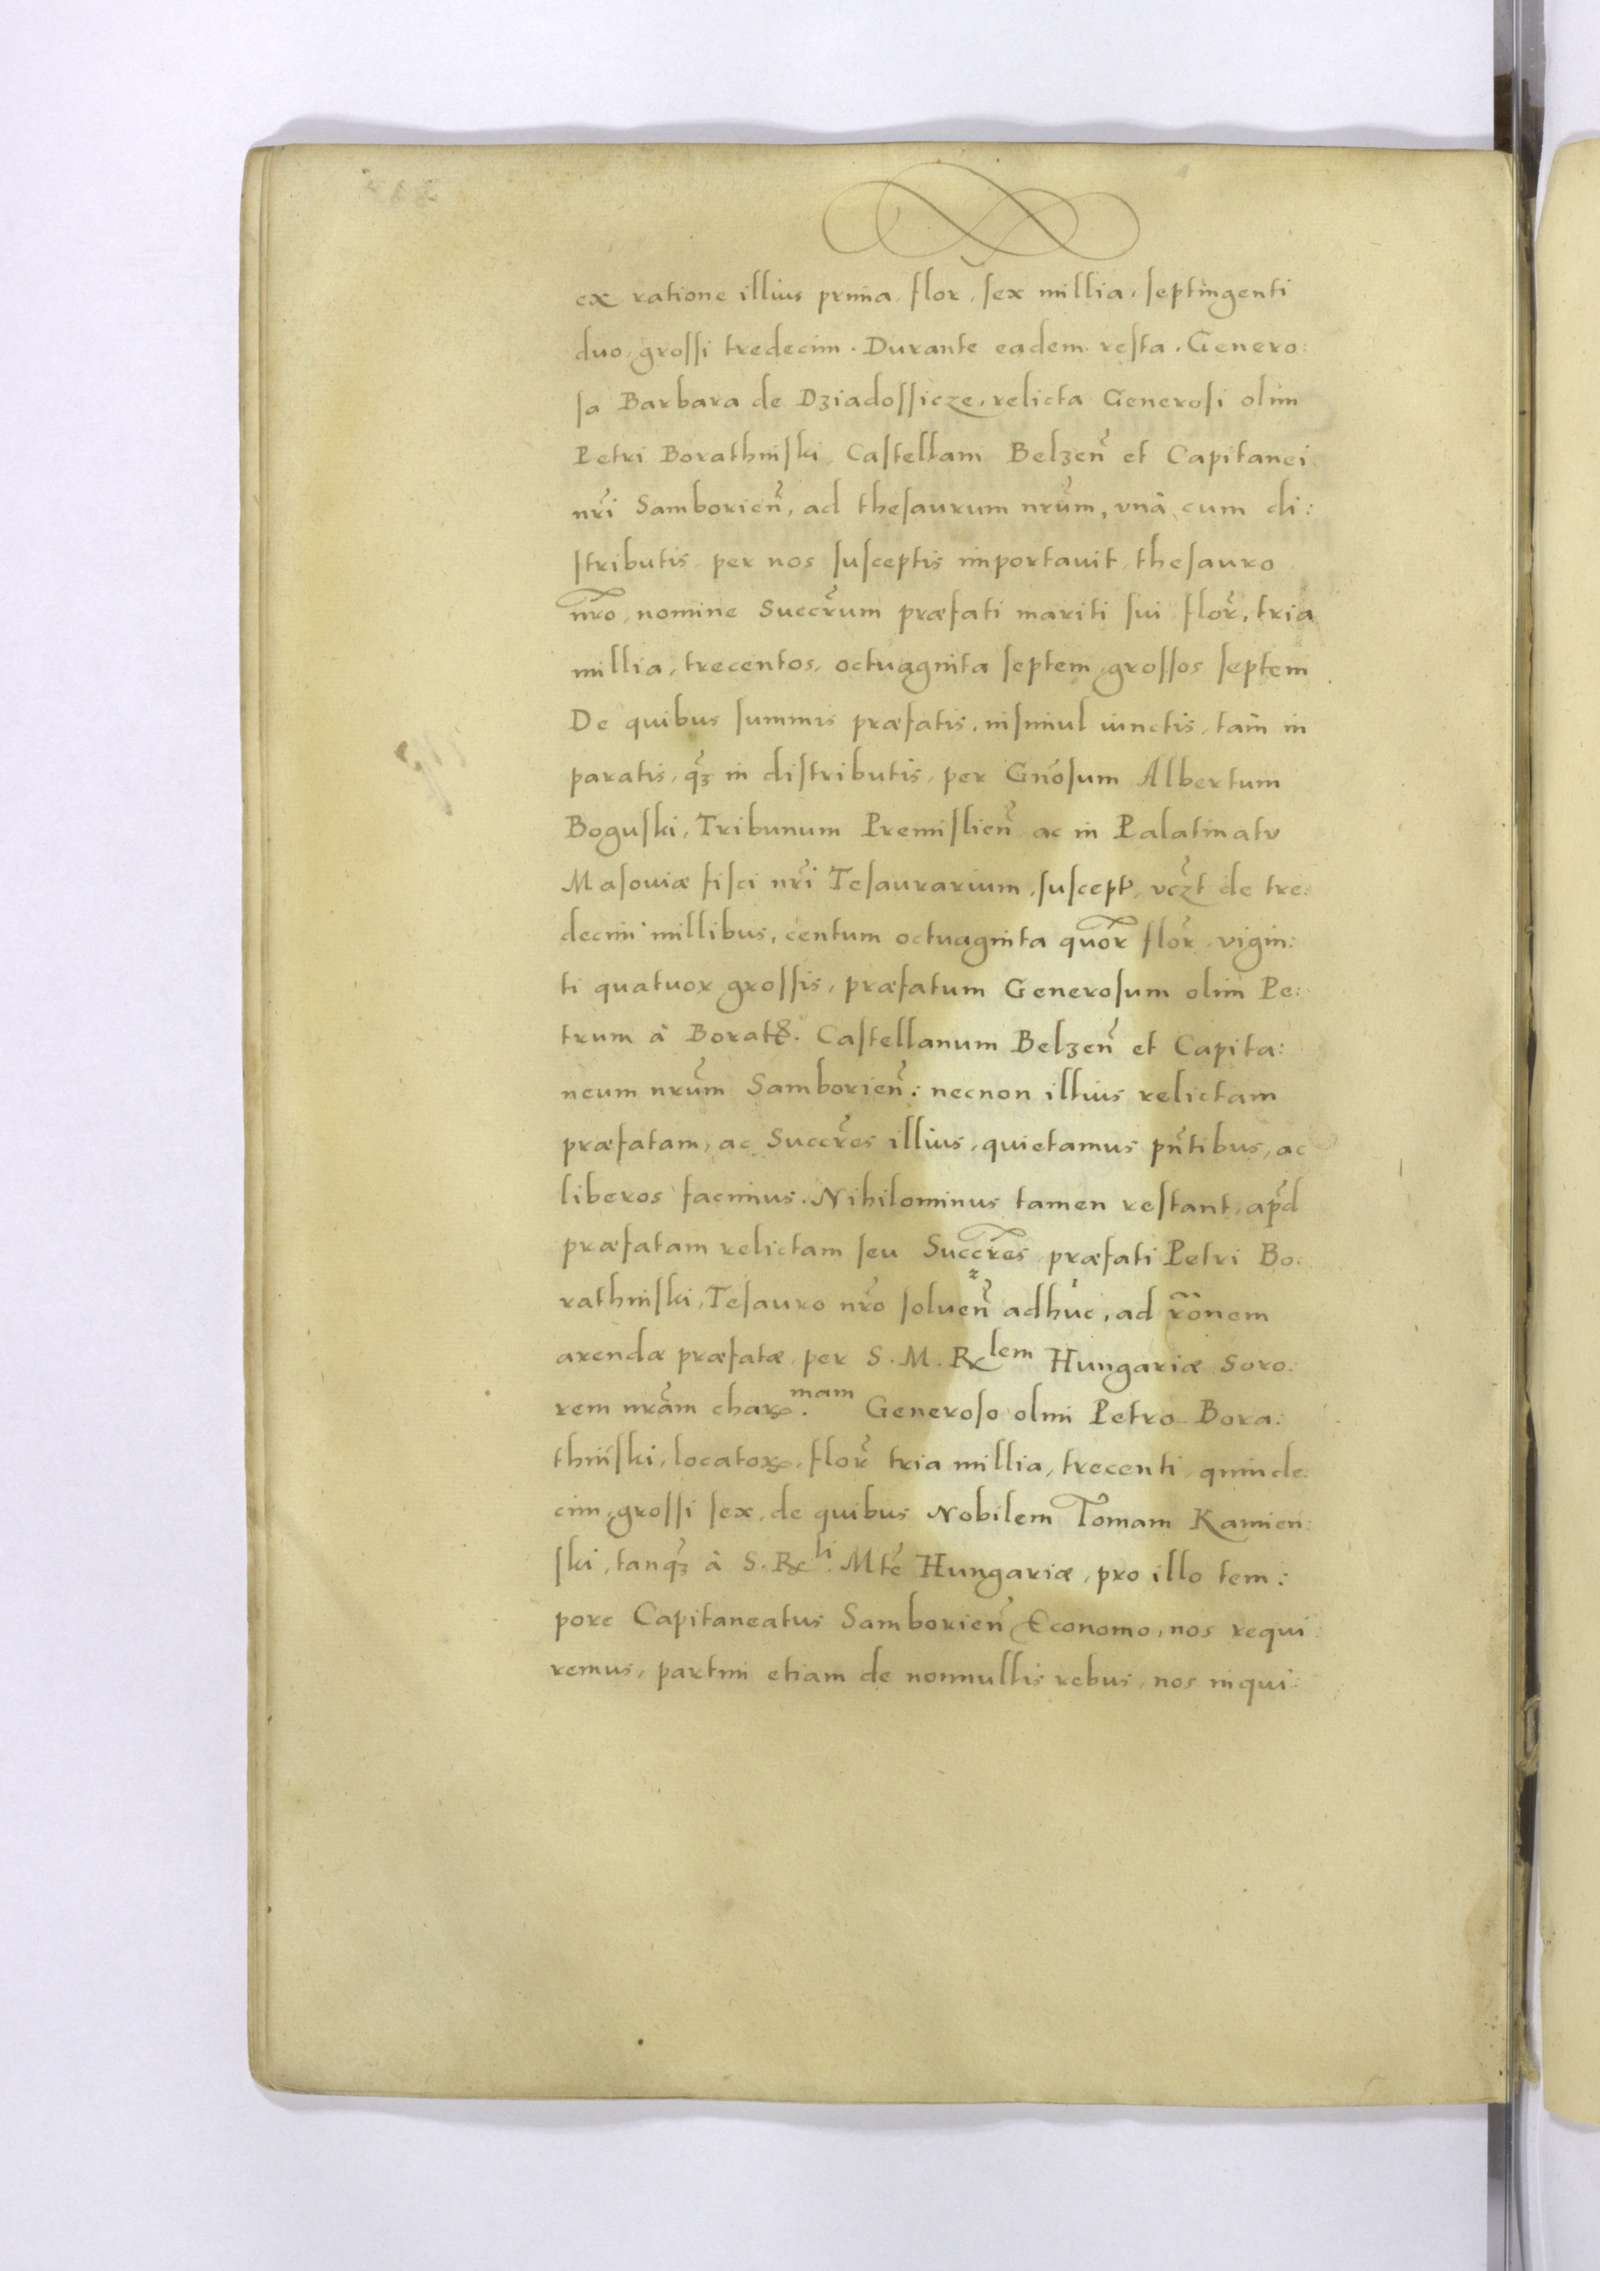 ex ratione illius prima, flor, ſex millia, ſeptingenti
duo, groſſi tredecim. Durante eadem reſta. Genero:
ſa Barbara de Dziadoſſicze, relicta Generoſi olim
Petri Borathinſki, Caſtellani Belzen̄ et Capitanei
nr̄i Samborien̄, ad theſaurum nrūm, vnâ cum di:
ſtributis per nos ſuſceptis importauit, theſauro
nr̄o, nomine Succr̄um præfati mariti ſui flor̄, tria
millia, trecentos, octuaginta ſeptem, groſſos ſeptem
De quibus ſummis præfatis, inſimul iunctis, tam in
paratis, qꝫ̄ in diſtributis, per Gnōſum Albertum
Boguſki, Tribunum Premiſlien̄ ac in Palatinatu
Maſouiæ fiſci nr̄i Teſaurarium, ſuſcept, vcꝫt de tre:
decim millibus, centum octuaginta quor̄ flor̄, vigin:
ti quatuor groſſis, præfatum Generoſum olim Pe:
trum â Borat. Caſtellanum Belzen̄ et Capita:
neum nrūm Samborien̄: necnon illius relictam
præfatam, ac Succr̄es illius, quietamus pn̄tibus, ac
liberos facimus. Nihilominus tamen reſtant, apd̄
præfatam relictam ſeu Succr̄es præfati Petri Bo:
rathinſki, Teſauro nr̄o ſoluen̄ adhuc, ad rōnem
arendæ præfatæ, per S. M. Rlem Hungariæ Soro:
rem nrām char.mam Generoſo olim Petro Bora:
thinſki, locatoꝝ, flor̄ tria millia, trecenti, quinde:
cim, groſſi ſex, de quibus Nobilem Tomam Kamien:
ſki, tanqꝫ̄ â S. Rli. Mtē Hungariæ, pro illo tem:
pore Capitaneatus Samborien̄ Economo, nos requi:
remus, partim etiam de nonnullis rebus, nos inqui: